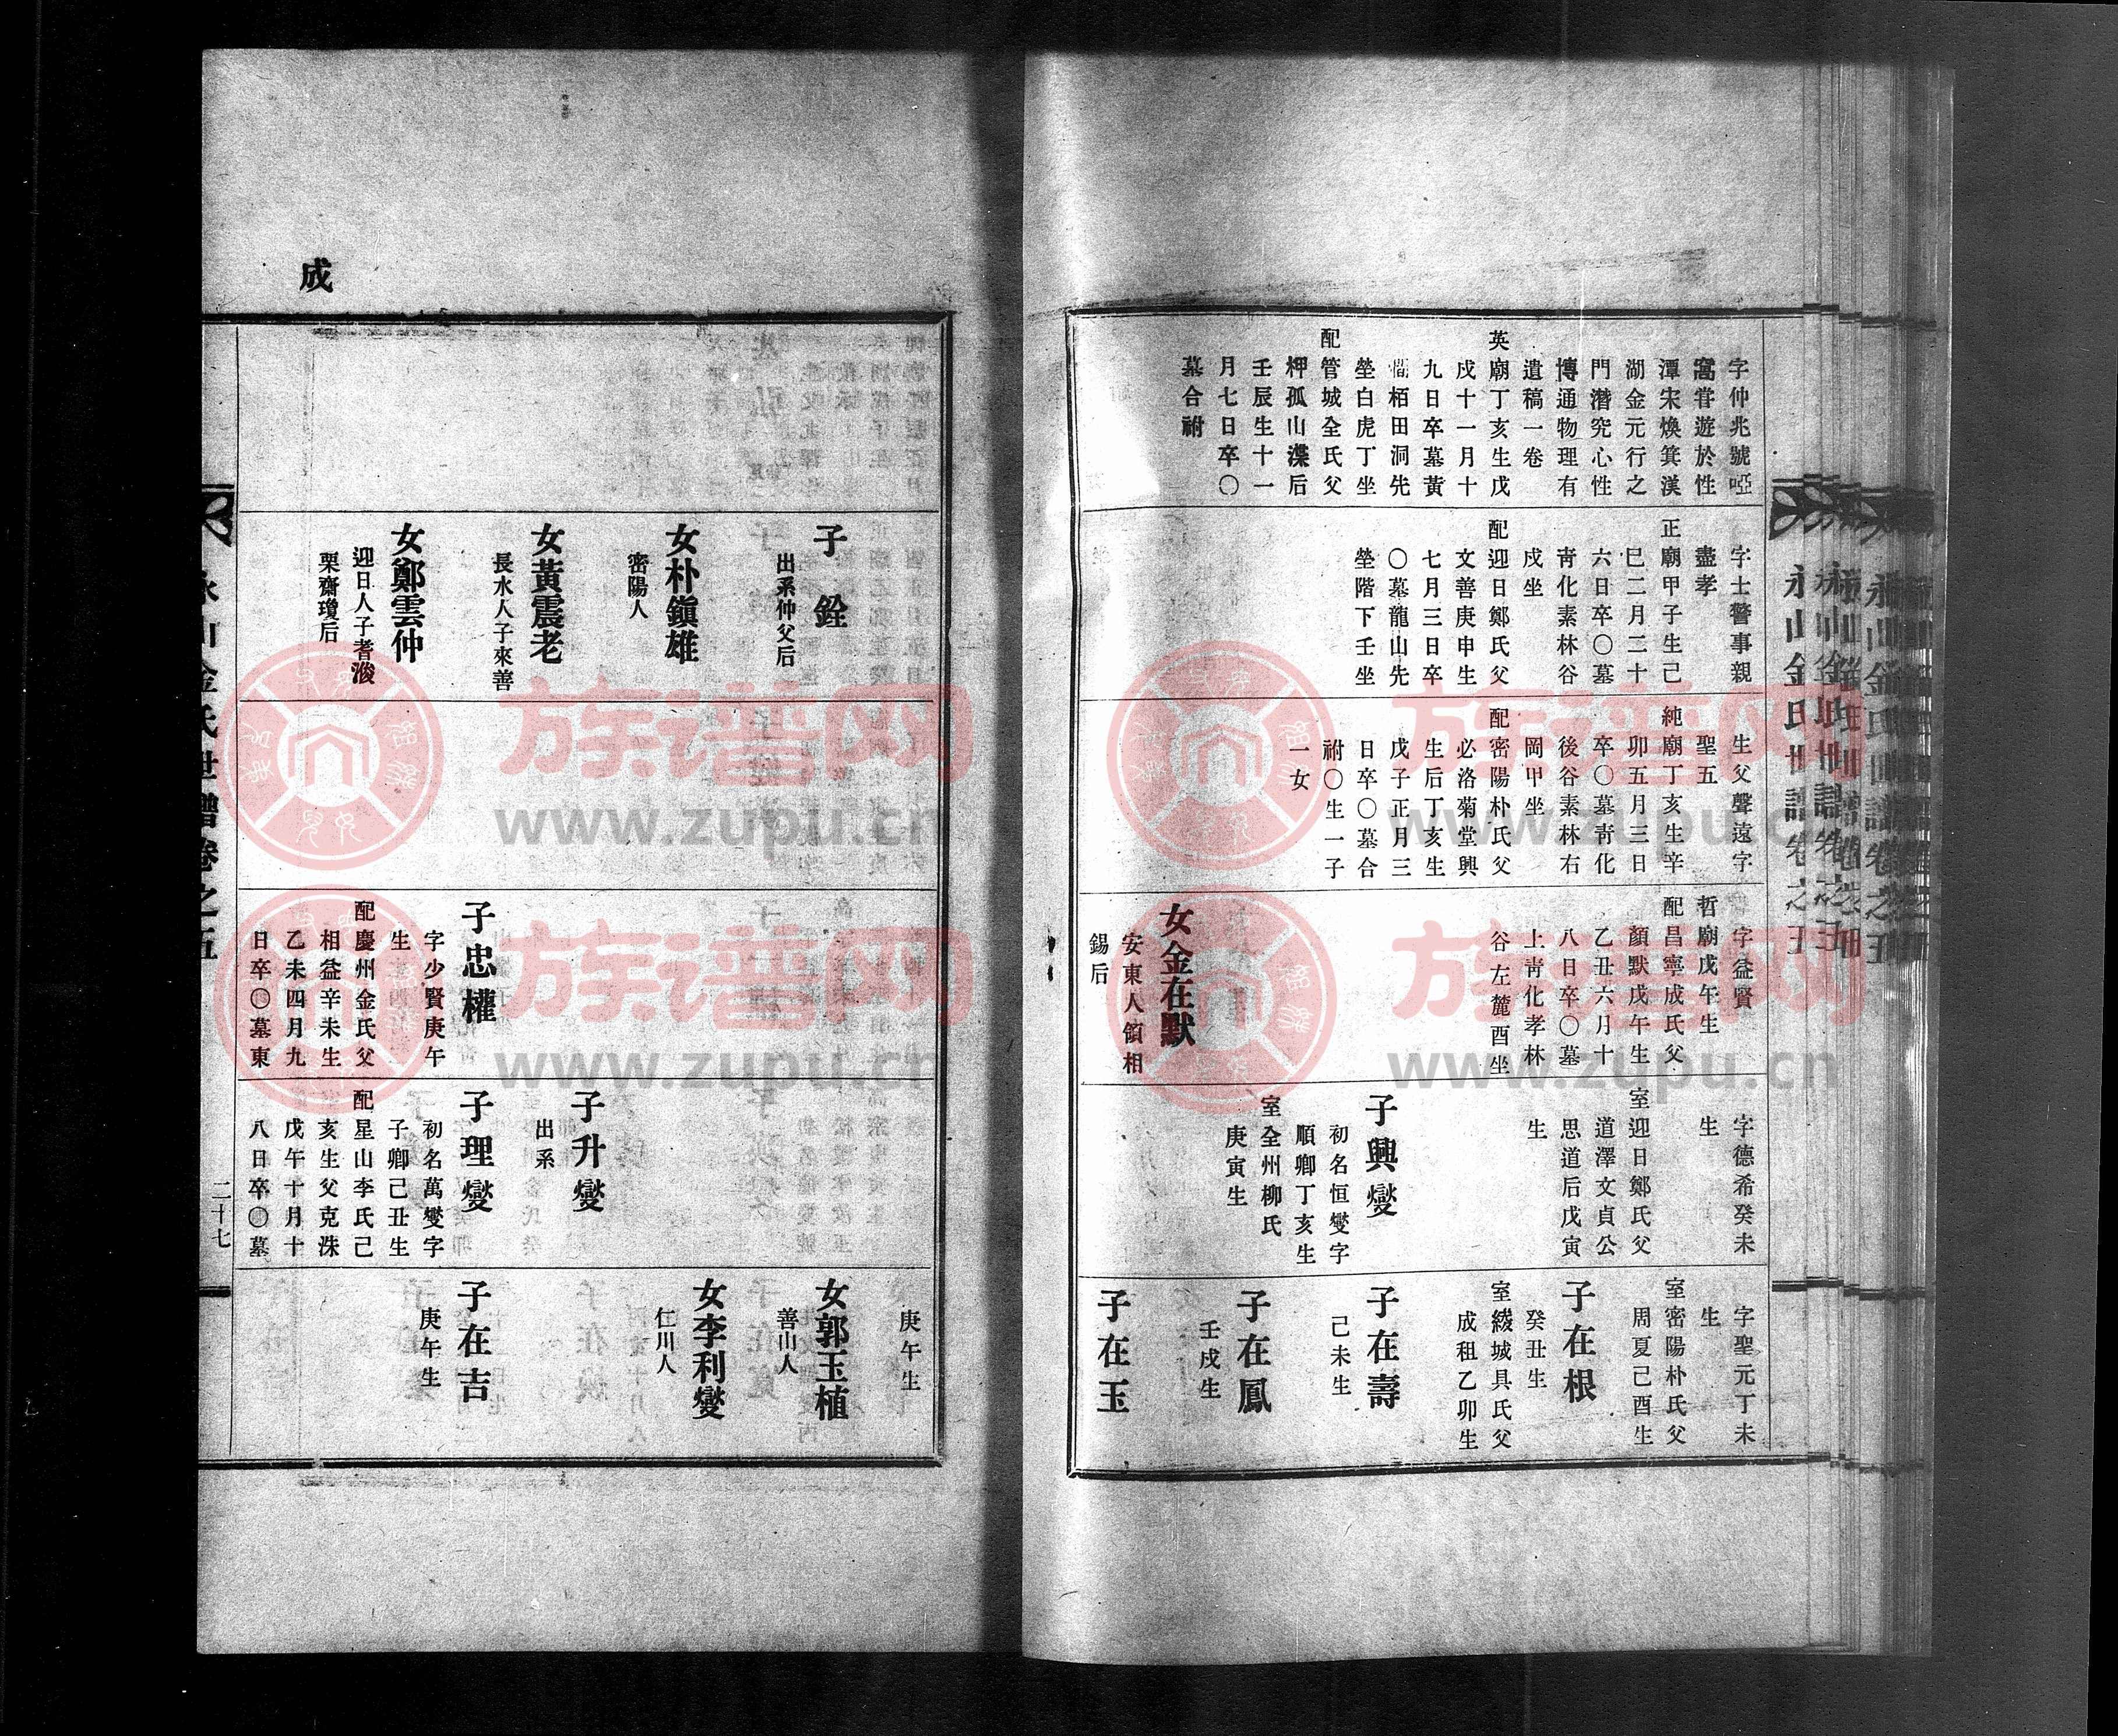 永山金氏世譜卷之五
字仲兆號啞
窩嘗遊於性
潭宋煥箕漢
湖金元行之
門潛究心性
博通物理有
遺稿一卷
英廟丁亥生戊
戌十一月十
九日卒墓黃
澗栢田洞先
塋白虎丁坐
配管城全氏父
柙孤山渫后
壬辰生十一
月七日卒〇
墓合祔
字士警事親
盡孝
正廟甲子生己
巳二月二十
六日卒〇墓
靑化素林谷
戌坐
配迎日鄭氏父
文善庚申生
七月三日卒
〇墓龍山先
塋階下壬坐
生父聲遠字
聖五
純廟丁亥生辛
卯五月三日
卒〇墓靑化
後谷素林右
岡甲坐
配密陽朴氏父
必洛菊堂興
生后丁亥生
戊子正月三
日卒〇墓合
祔〇生一子
一女
字益賢
哲廟戊午生
配昌寧成氏父
顏默戊午生
乙丑六月十
八日卒〇墓
上靑化孝林
谷左麓酉坐
女金在默
安東人領相
錫后
字德希癸未
生
室迎日鄭氏父
道澤文貞公
思道后戊寅
生
子興燮
初名恒燮字
順卿丁亥生
室全州柳氏
庚寅生
字聖元丁未
生
室密陽朴氏父
周夏己酉生
子在根
癸丑生
室綾城具氏父
成租乙卯生
子在壽
己未生
子在鳳
壬戌生
子在玉
成
子銓
出系仲父后
女朴鎭雄
密陽人
女黃震老
長水人子來善
女鄭雲仲
迎日人子耆浚
栗齋瓊后
子忠權
字少賢庚午
生
配慶州金氏父
相益辛未生
乙未四月九
日卒〇墓東
子升燮
出系
子理燮
初名萬燮字
子卿己丑生
配星山李氏己
亥生父克洙
戊午十月十
八日卒〇墓
庚午生
女郭玉植
善山人
女李利燮
仁川人
子在吉
庚午生
永山金氏世譜卷之五
二十七
族谱网
www.zupu.cn
族谱网
www.zupu.cn
族谱网
www.zupu.cn
族谱网
www.zupu.cn